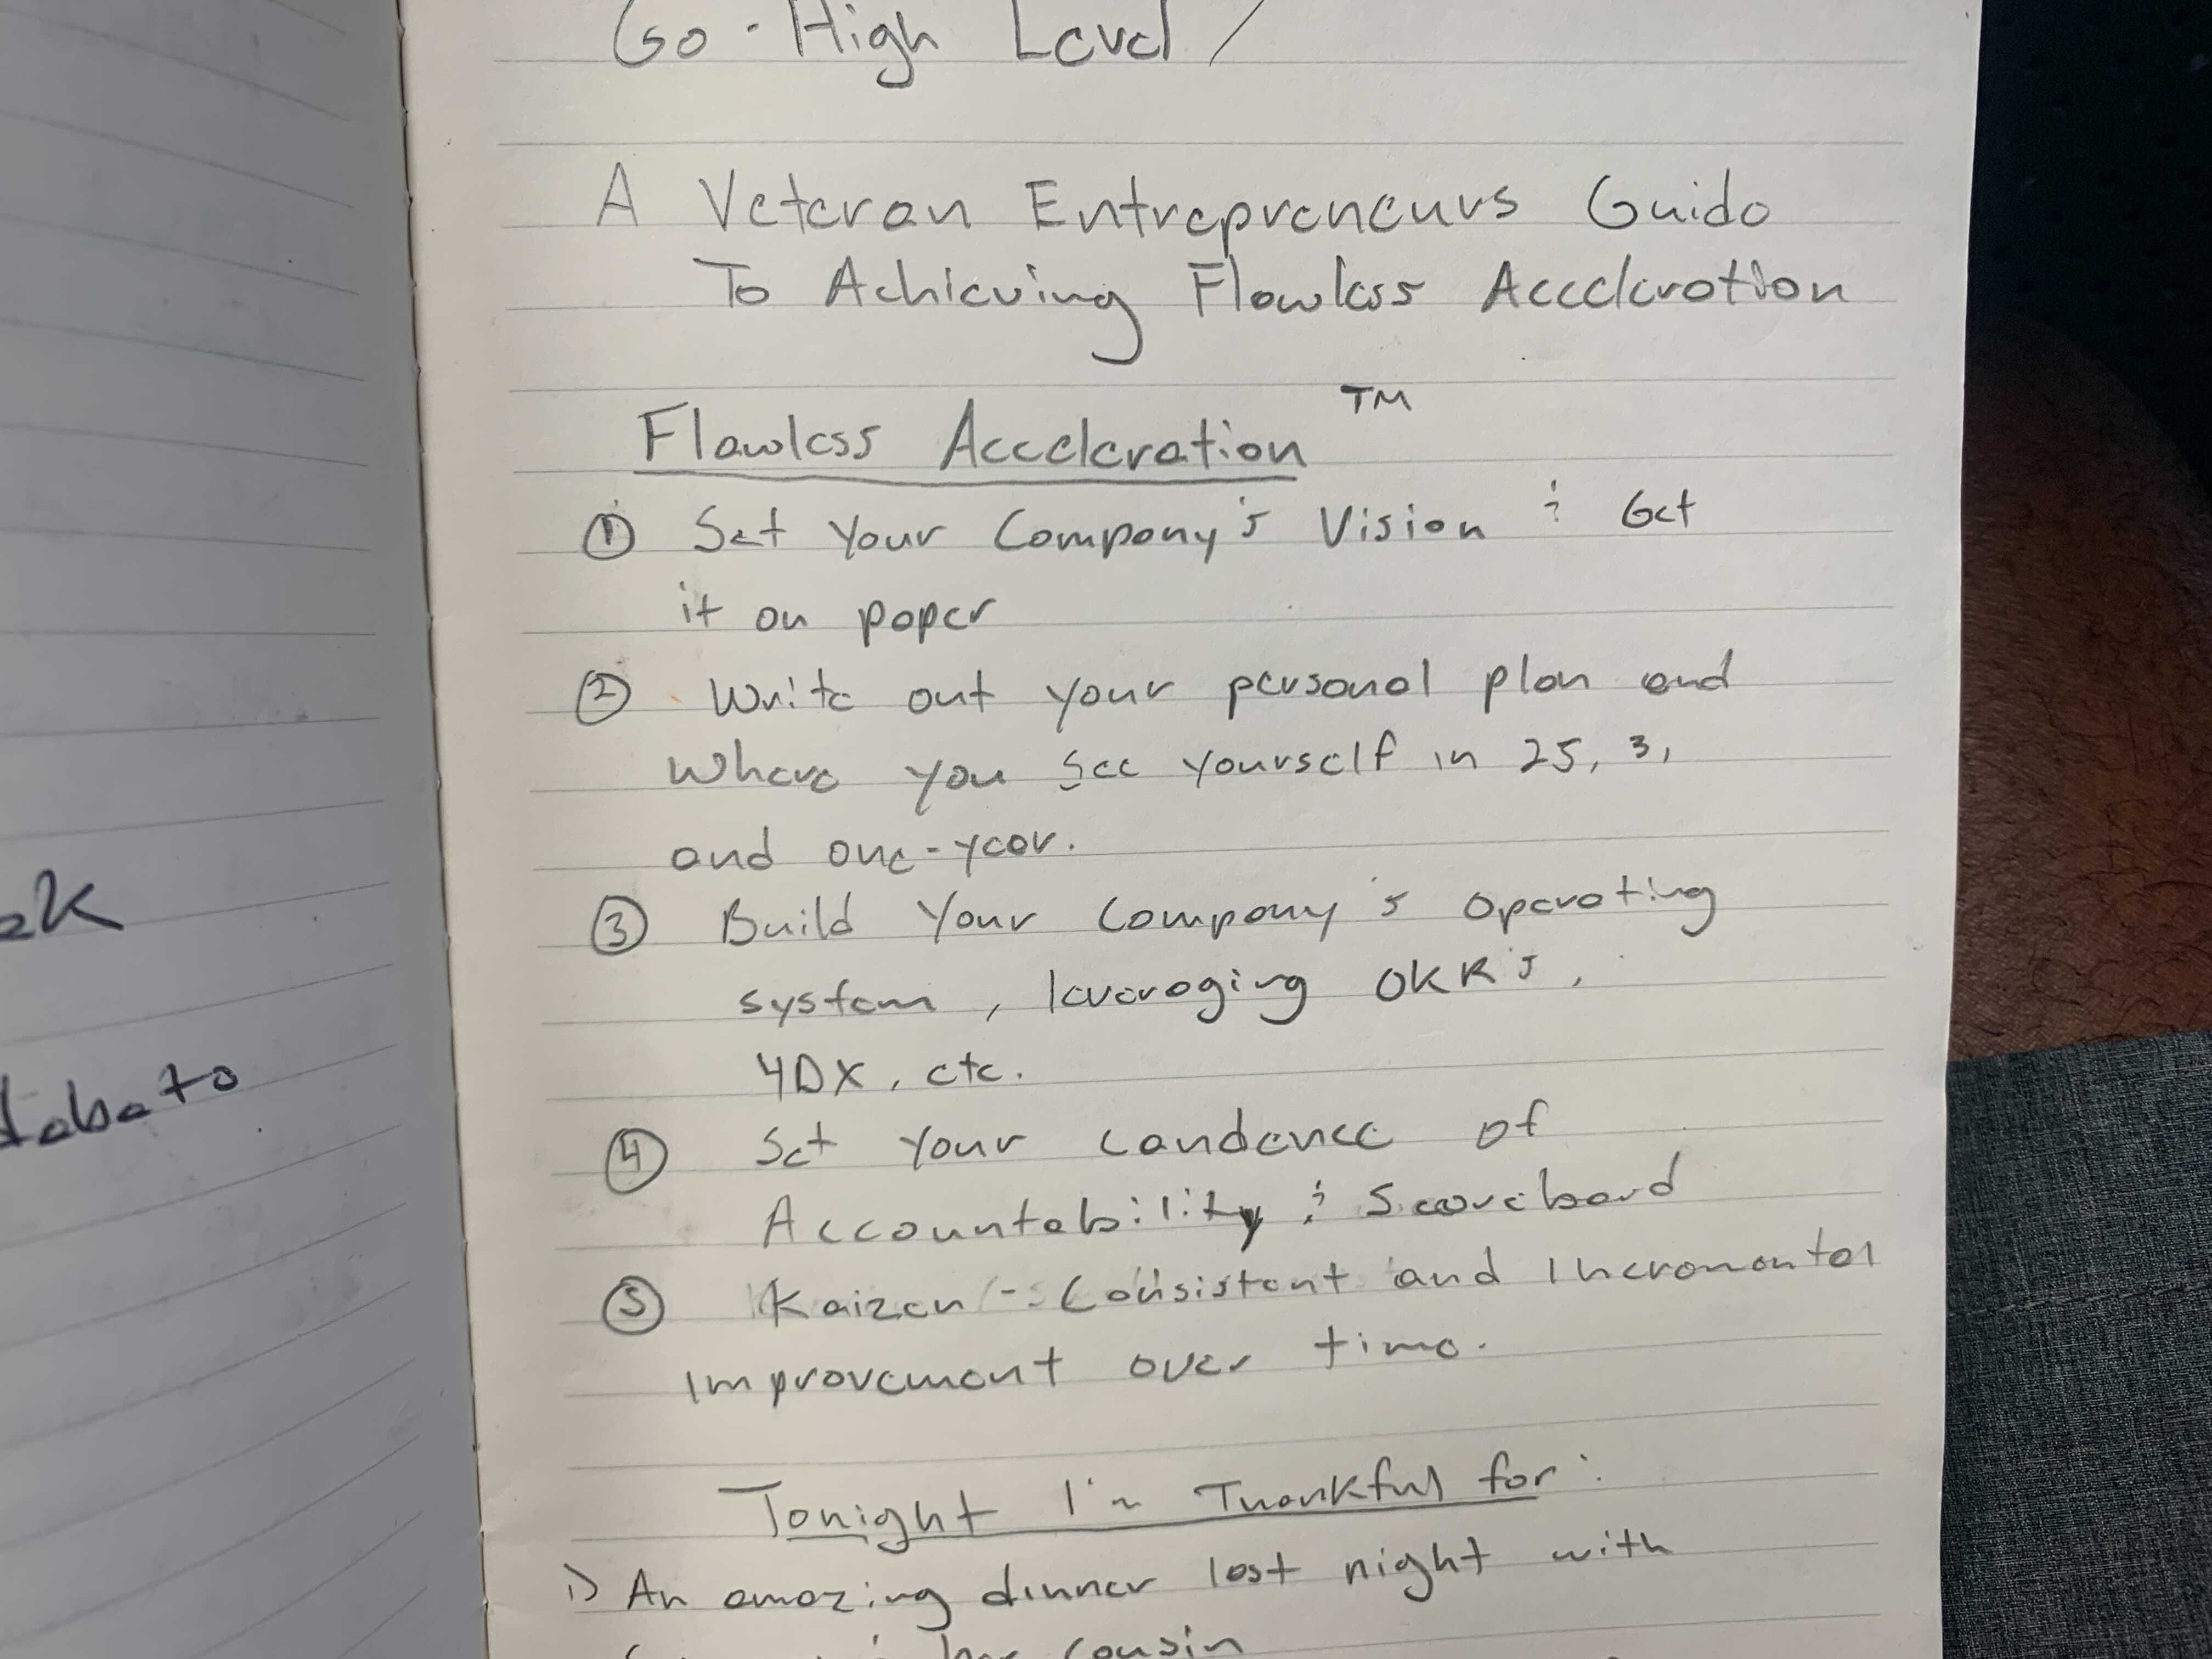 Go-High Level /
A Veteran Entrepreneurs Guide
To Achieving Flawless Acceleration
Flawless Acceleration ™
① Set Your Company's Vision & Get
it on paper
② Write out your personal plan and
Where you see yourself in 25, 3,
and one-year.
③ Build Your Company's operating
system, leveraging OKR's,
4DX, etc.
④ Set Your candence of
Accountability & Scoreboard
⑤ Kaizen - Consistent and Incremental
Improvement over time.
Tonight I'm Thankful for:
1) An amazing dinner last night with
her cousin